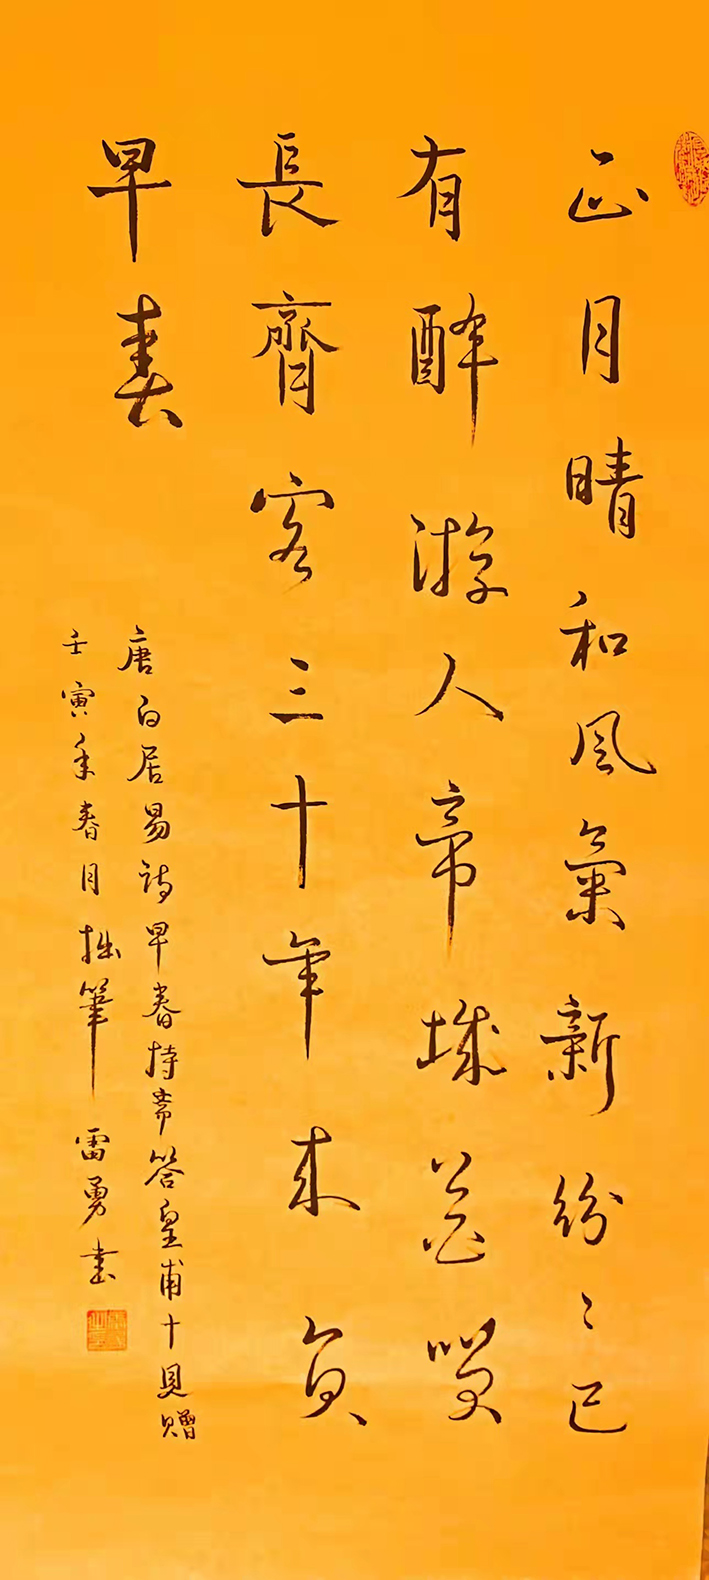 正月晴和風氣新紛〻已
有醉游人帝城花笑
長齋客三十年来負
早春
唐白居易詩早春持斋答皇甫十見赠
壬寅年春月拙筆雷勇書